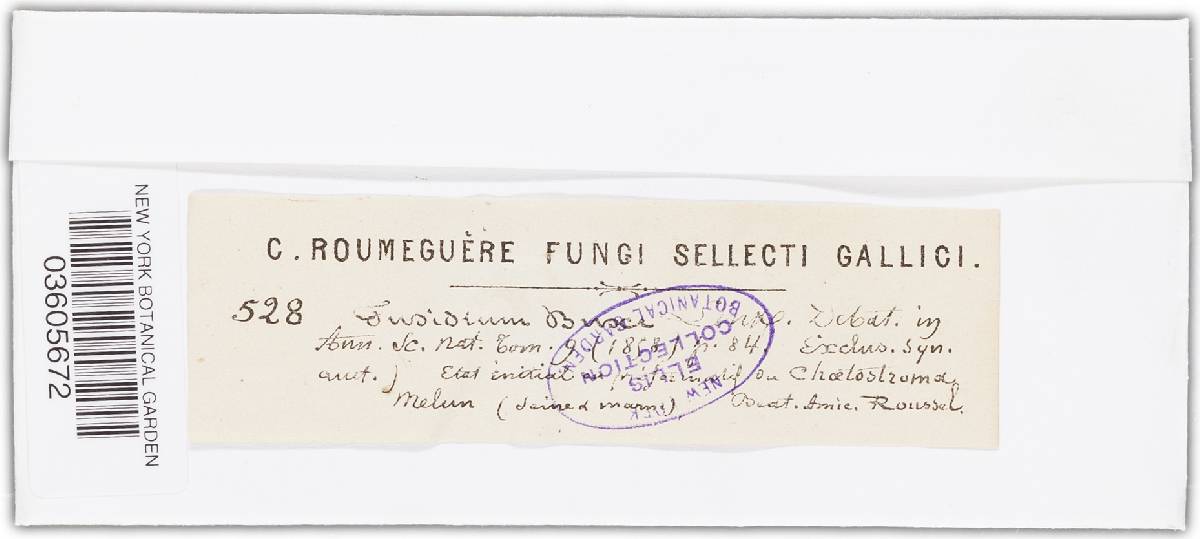 NEW YORK BOTANICAL GARDEN
03605672
C. ROUMEGUÈRE FUNGI SELLECTI GALLICI.
528 Fusidium Buxi Debat. in
Ann. Sc. Nat. Tom. 9 (1858) p. 84. Exclus. Syn.
auct.) Etat initial ou Chœtostroma.
Melun (Seine & marne) Beat. Amic. Roussel.
NEW YORK
ELLIS
COLLECTION
BOTANICAL GARDEN